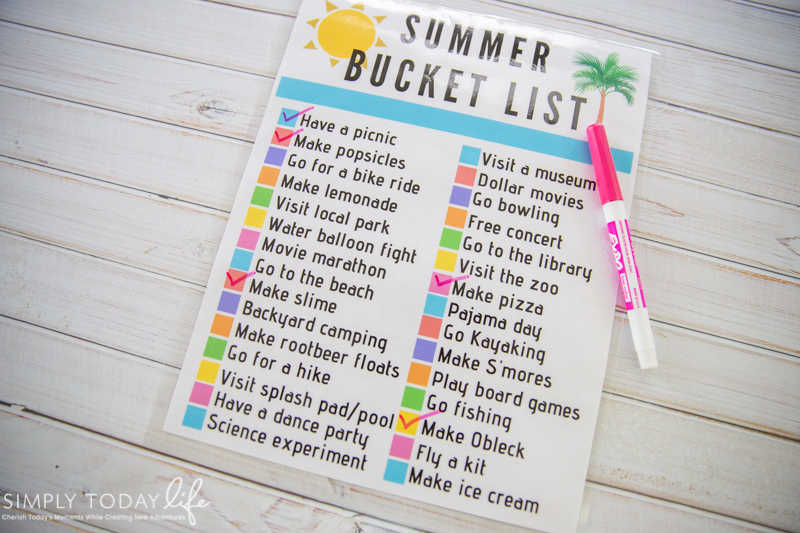 SUMMER
BUCKET LIST
Have a picnic
Make popsicles
Go for a bike ride
Make lemonade
Visit local park
Water balloon fight
Movie marathon
Go to the beach
Make slime
Backyard camping
Make rootbeer floats
Go for a hike
Visit splash pad/pool
Have a dance party
Science experiment
Visit a museum
Dollar movies
Go bowling
Free concert
Go to the library
Visit the zoo
Make pizza
Pajama day
Go Kayaking
Make S'mores
Play board games
Go fishing
Make Obleck
Fly a kit
Make ice cream
EXPO
SIMPLY TODAY life
Cherish Today's Moments While Creating New Adventures